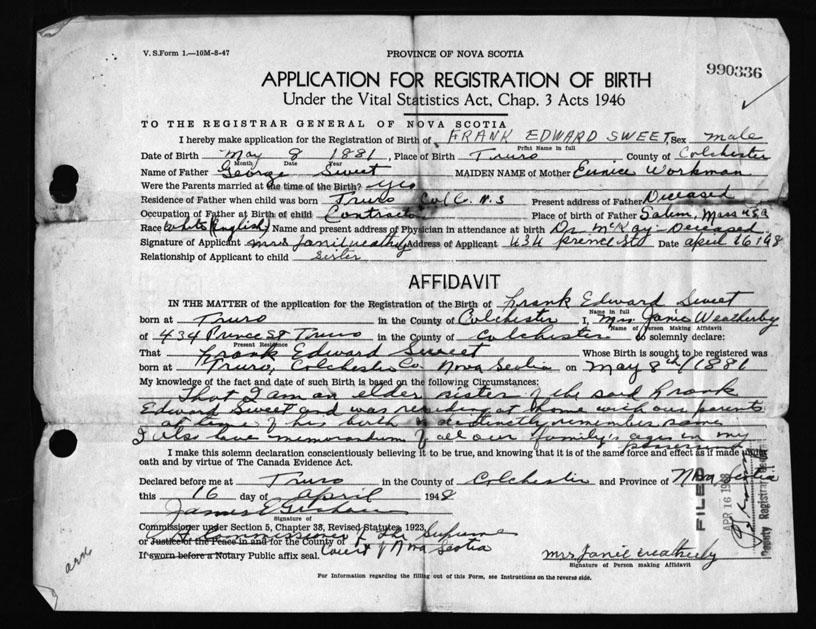 V. S. Form 1.—10M-8-47
PROVINCE OF NOVA SCOTIA
990336
APPLICATION FOR REGISTRATION OF BIRTH
Under the Vital Statistics Act, Chap. 3 Acts 1946
TO THE REGISTRAR GENERAL OF NOVA SCOTIA
I hereby make application for the Registration of Birth of FRANK EDWARD SWEET, Sex male
Print Name in full
Date of Birth May 8 1881, Place of Birth Truro County of Colchester
Month Day Year
Name of Father George Sweet MAIDEN NAME of Mother Eunice Workman
Were the Parents married at the time of the Birth? yes
Residence of Father when child was born Truro Col Co. N.S Present address of Father Deceased
Occupation of Father at Birth of child Contractor Place of birth of Father Salem, Mass U.S.A
Race White (English) Name and present address of Physician in attendance at birth Dr McKay - Deceased
Signature of Applicant Mrs Janie Weatherby Address of Applicant 434 Prince St Date April 16 1948
Relationship of Applicant to child Sister
AFFIDAVIT
IN THE MATTER of the application for the Registration of the Birth of Frank Edward Sweet
Name in full
born at Truro in the County of Colchester I, Mrs Janie Weatherby
Name of Person Making Affidavit
of 434 Prince St Truro in the County of Colchester do solemnly declare:
Present Residence
That Frank Edward Sweet Whose Birth is sought to be registered was
born at Truro, Colchester Co. Nova Scotia on May 8th 1881
My knowledge of the fact and date of such Birth is based on the following Circumstances:
That I am an elder sister of the said Frank
Edward Sweet and was residing at home with our parents
at time of his birth & distinctly remember same
I also have memorandum of all our family's ages in my
possession
I make this solemn declaration conscientiously believing it to be true, and knowing that it is of the same force and effect as if made under
oath and by virtue of The Canada Evidence Act.
Declared before me at Truro in the County of Colchester and Province of Nova Scotia
this 16 day of April 1948
James E Graham
Signature of
Commissioner under Section 5, Chapter 38, Revised Statutes 1923,
A Commissioner of the Supreme
or Justice of the Peace in and for the County of Court of Nova Scotia
If sworn before a Notary Public affix seal.
Mrs Janie Weatherby
Signature of Person making Affidavit
For Information regarding the filling out of this Form, see Instructions on the reverse side.
FILED
APR 16 1948